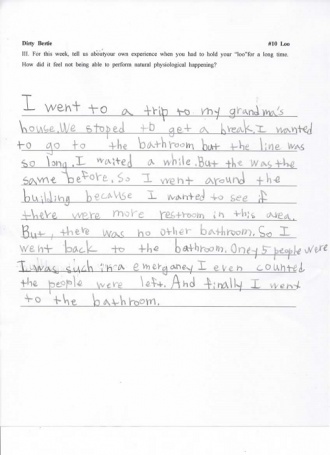 Dirty Bertie #10 Loo
III. For this week, tell us aboutyour own experience when you had to hold your "loo"for a long time.
How did it feel not being able to perform natural physiological happening?
I went to a trip to my grandma's
house.We stoped to get a break.I wanted
to go to the bathroom but the line was
so long. I waited a while.But the was the
same before.So I went around the
building because I wanted to see if
there were more restroom in this area.
But, there was no other bathroom.So I
went back to the bathroom.Oney 5 people were
I was such in a emerganey I even counted
the people were left. And finally I went
to the bathroom.